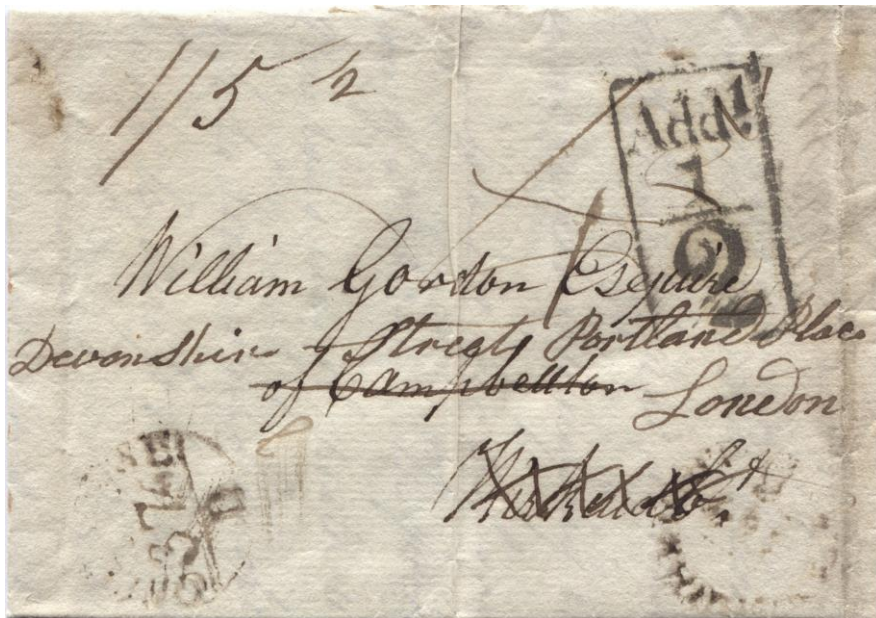 1/5 1/2
Addl
1
2
William Gordon Esquire
Devonshire Street Portland Place
of Campbellton
London
Kirkcudbt.